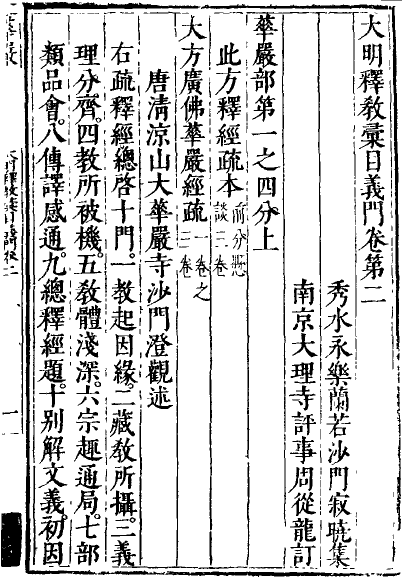 大明釋教彙目義門卷第二
秀水永樂蘭若沙門寂曉集
南京大理寺評事周從龍訂
華嚴部第一之四分上
此方釋經疏本前分懸談三卷
大方廣佛華嚴經疏一卷之三卷
唐清涼山大華嚴寺沙門澄觀述
右疏釋經總啓十門。一教起因緣。二藏教所攝。三義
理分齊。四教所被機。五教體淺深。六宗趣通局。七部
類品會。八傳譯感通。九總釋經題。十別解文義。初因